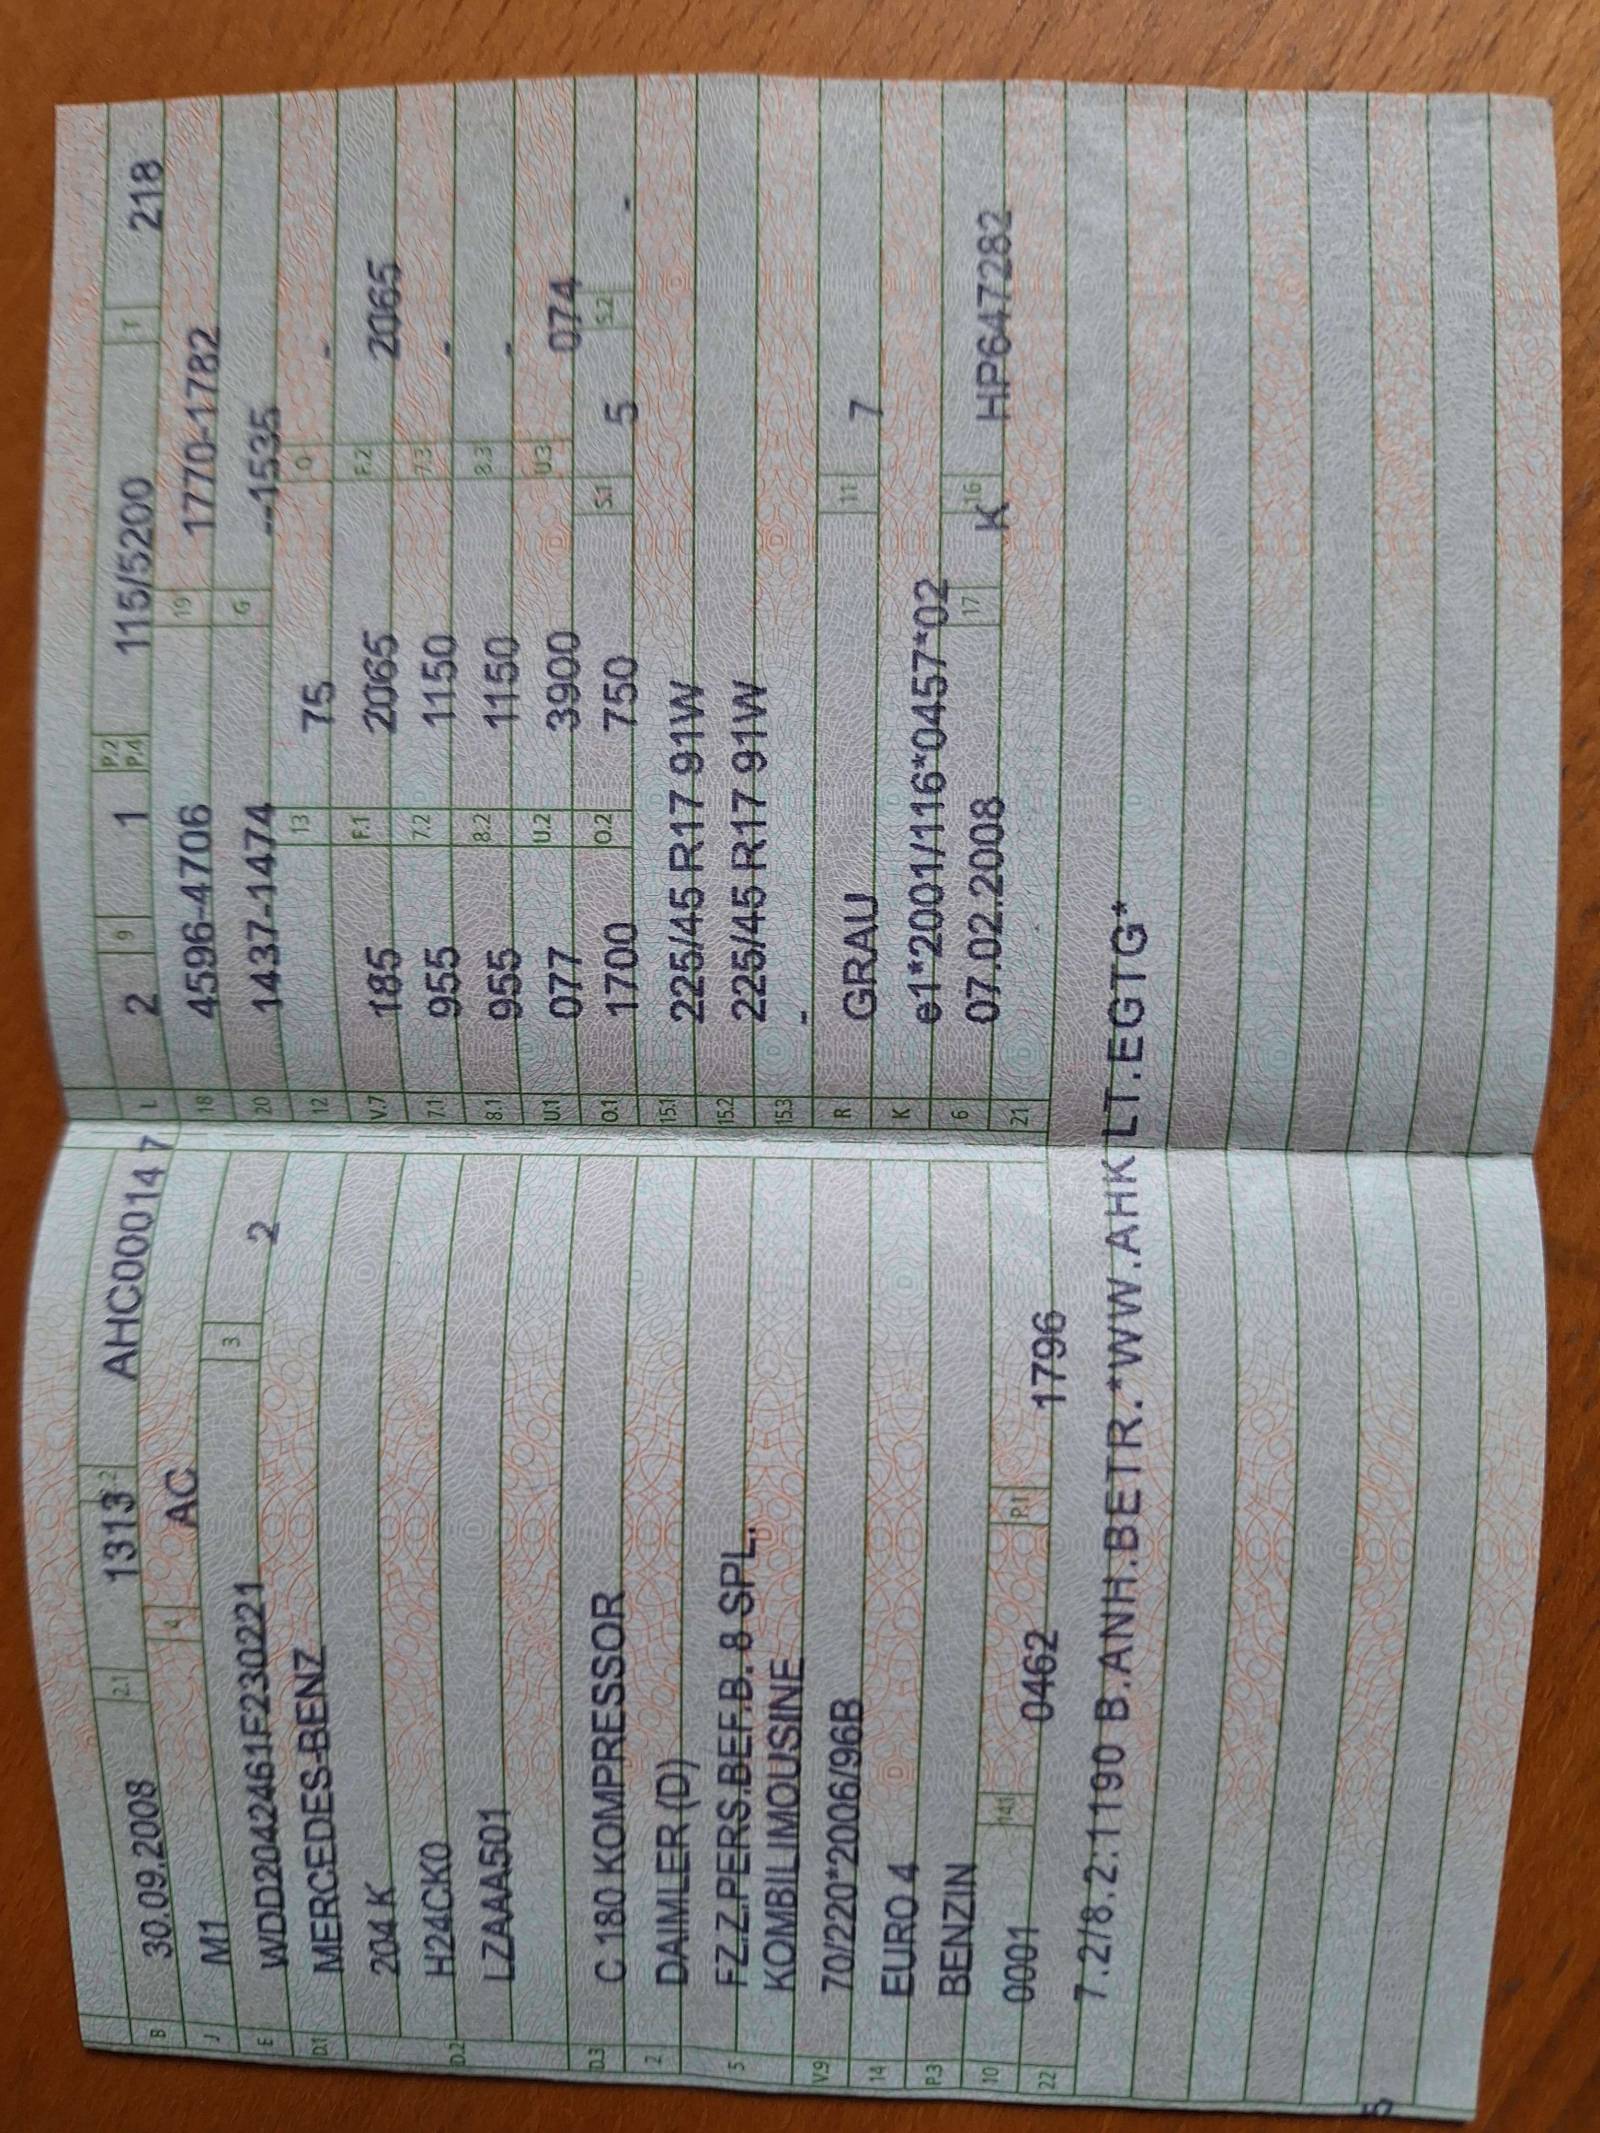 B 30.09.2008 2.1 1313 2.2 AHC00014 7
J M1 4 AC
E WDD2042461F230221 3 2
D.1 MERCEDES-BENZ
204 K
D.2 H24CK0
LZAAA501
D.3 C 180 KOMPRESSOR
2 DAIMLER (D)
5 FZ.Z.PERS.BEF.B. 8 SPL.
KOMBILIMOUSINE
V.9 70/220*2006/96B
14 EURO 4
P.3 BENZIN
10 0001 14.1 0462 P.1 1796
22 7.2/8.2:1190 B.ANH.BETR.*WW.AHK LT.EGTG*
L 2 9 1 P.2 P.4 115/5200 T 218
18 4596-4706 19 1770-1782
20 1437-1474 G --1535
12 13 75 Q -
V.7 185 F.1 2065 F.2 2065
7.1 955 7.2 1150 7.3 -
8.1 955 8.2 1150 8.3 -
U.1 077 U.2 3900 U.3 074
O.1 1700 O.2 750 S.1 5 S.2 -
15.1 225/45 R17 91W
15.2 225/45 R17 91W
15.3 -
R GRAU 11 7
K e1*2001/116*0457*02
6 07.02.2008 17 K 16 HP647282
21
5